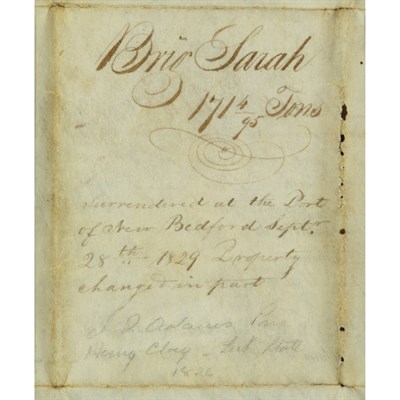 Brig Sarah
171 4/95 Tons
Surrendered at the Port
of New Bedford Septr.
28th - 1829 Property
changed in part
J Q Adams
Henry Clay - 
1826